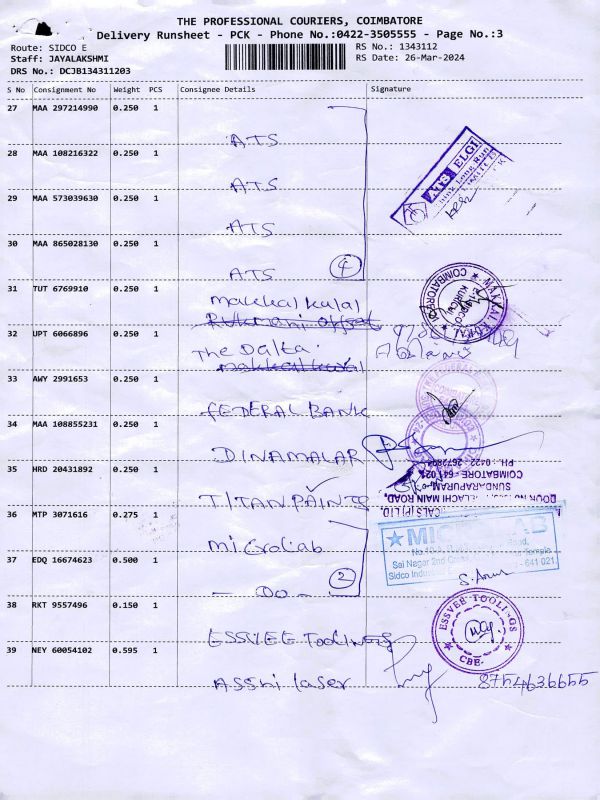 THE PROFESSIONAL COURIERS, COIMBATORE
Delivery Runsheet - PCK - Phone No.:0422-3505555 - Page No.:3
Route: SIDCO E
RS No.: 1343112
Staff: JAYALAKSHMI
RS Date: 26-Mar-2024
DRS No.: DCJB134311203
S No Consignment No Weight PCS Consignee Details Signature
27 MAA 297214990 0.250 1
ATS
28 MAA 108216322 0.250 1
ATS
29 MAA 573039630 0.250 1
ATS
30 MAA 865028130 0.250 1
ATS
4
ATS ELGI
31 TUT 6769910 0.250 1
makkal kural
Rukmani offset
MAKKAL KURAL
COIMBATORE
32 UPT 6066896 0.250 1
The Dalta.
makkal kural
33 AWY 2991653 0.250 1
FEDERAL BANK
34 MAA 108855231 0.250 1
DINAMALAR
35 HRD 20431892 0.250 1
TITAN PAINTS
MAIN ROAD,
SUNDARAPURAM,
COIMBATORE - 641 024.
PH. : 0422 -
36 MTP 3071616 0.275 1
Microlab
37 EDQ 16674623 0.500 1
- DO -
2
Sai Nagar 2nd
Sidco Indust
641 021
38 RKT 9557496 0.150 1
ESSVEE TOOLINGS
ESSVEE TOOLINGS
CBE-
39 NEY 60054102 0.595 1
Asshi laser
8754636655